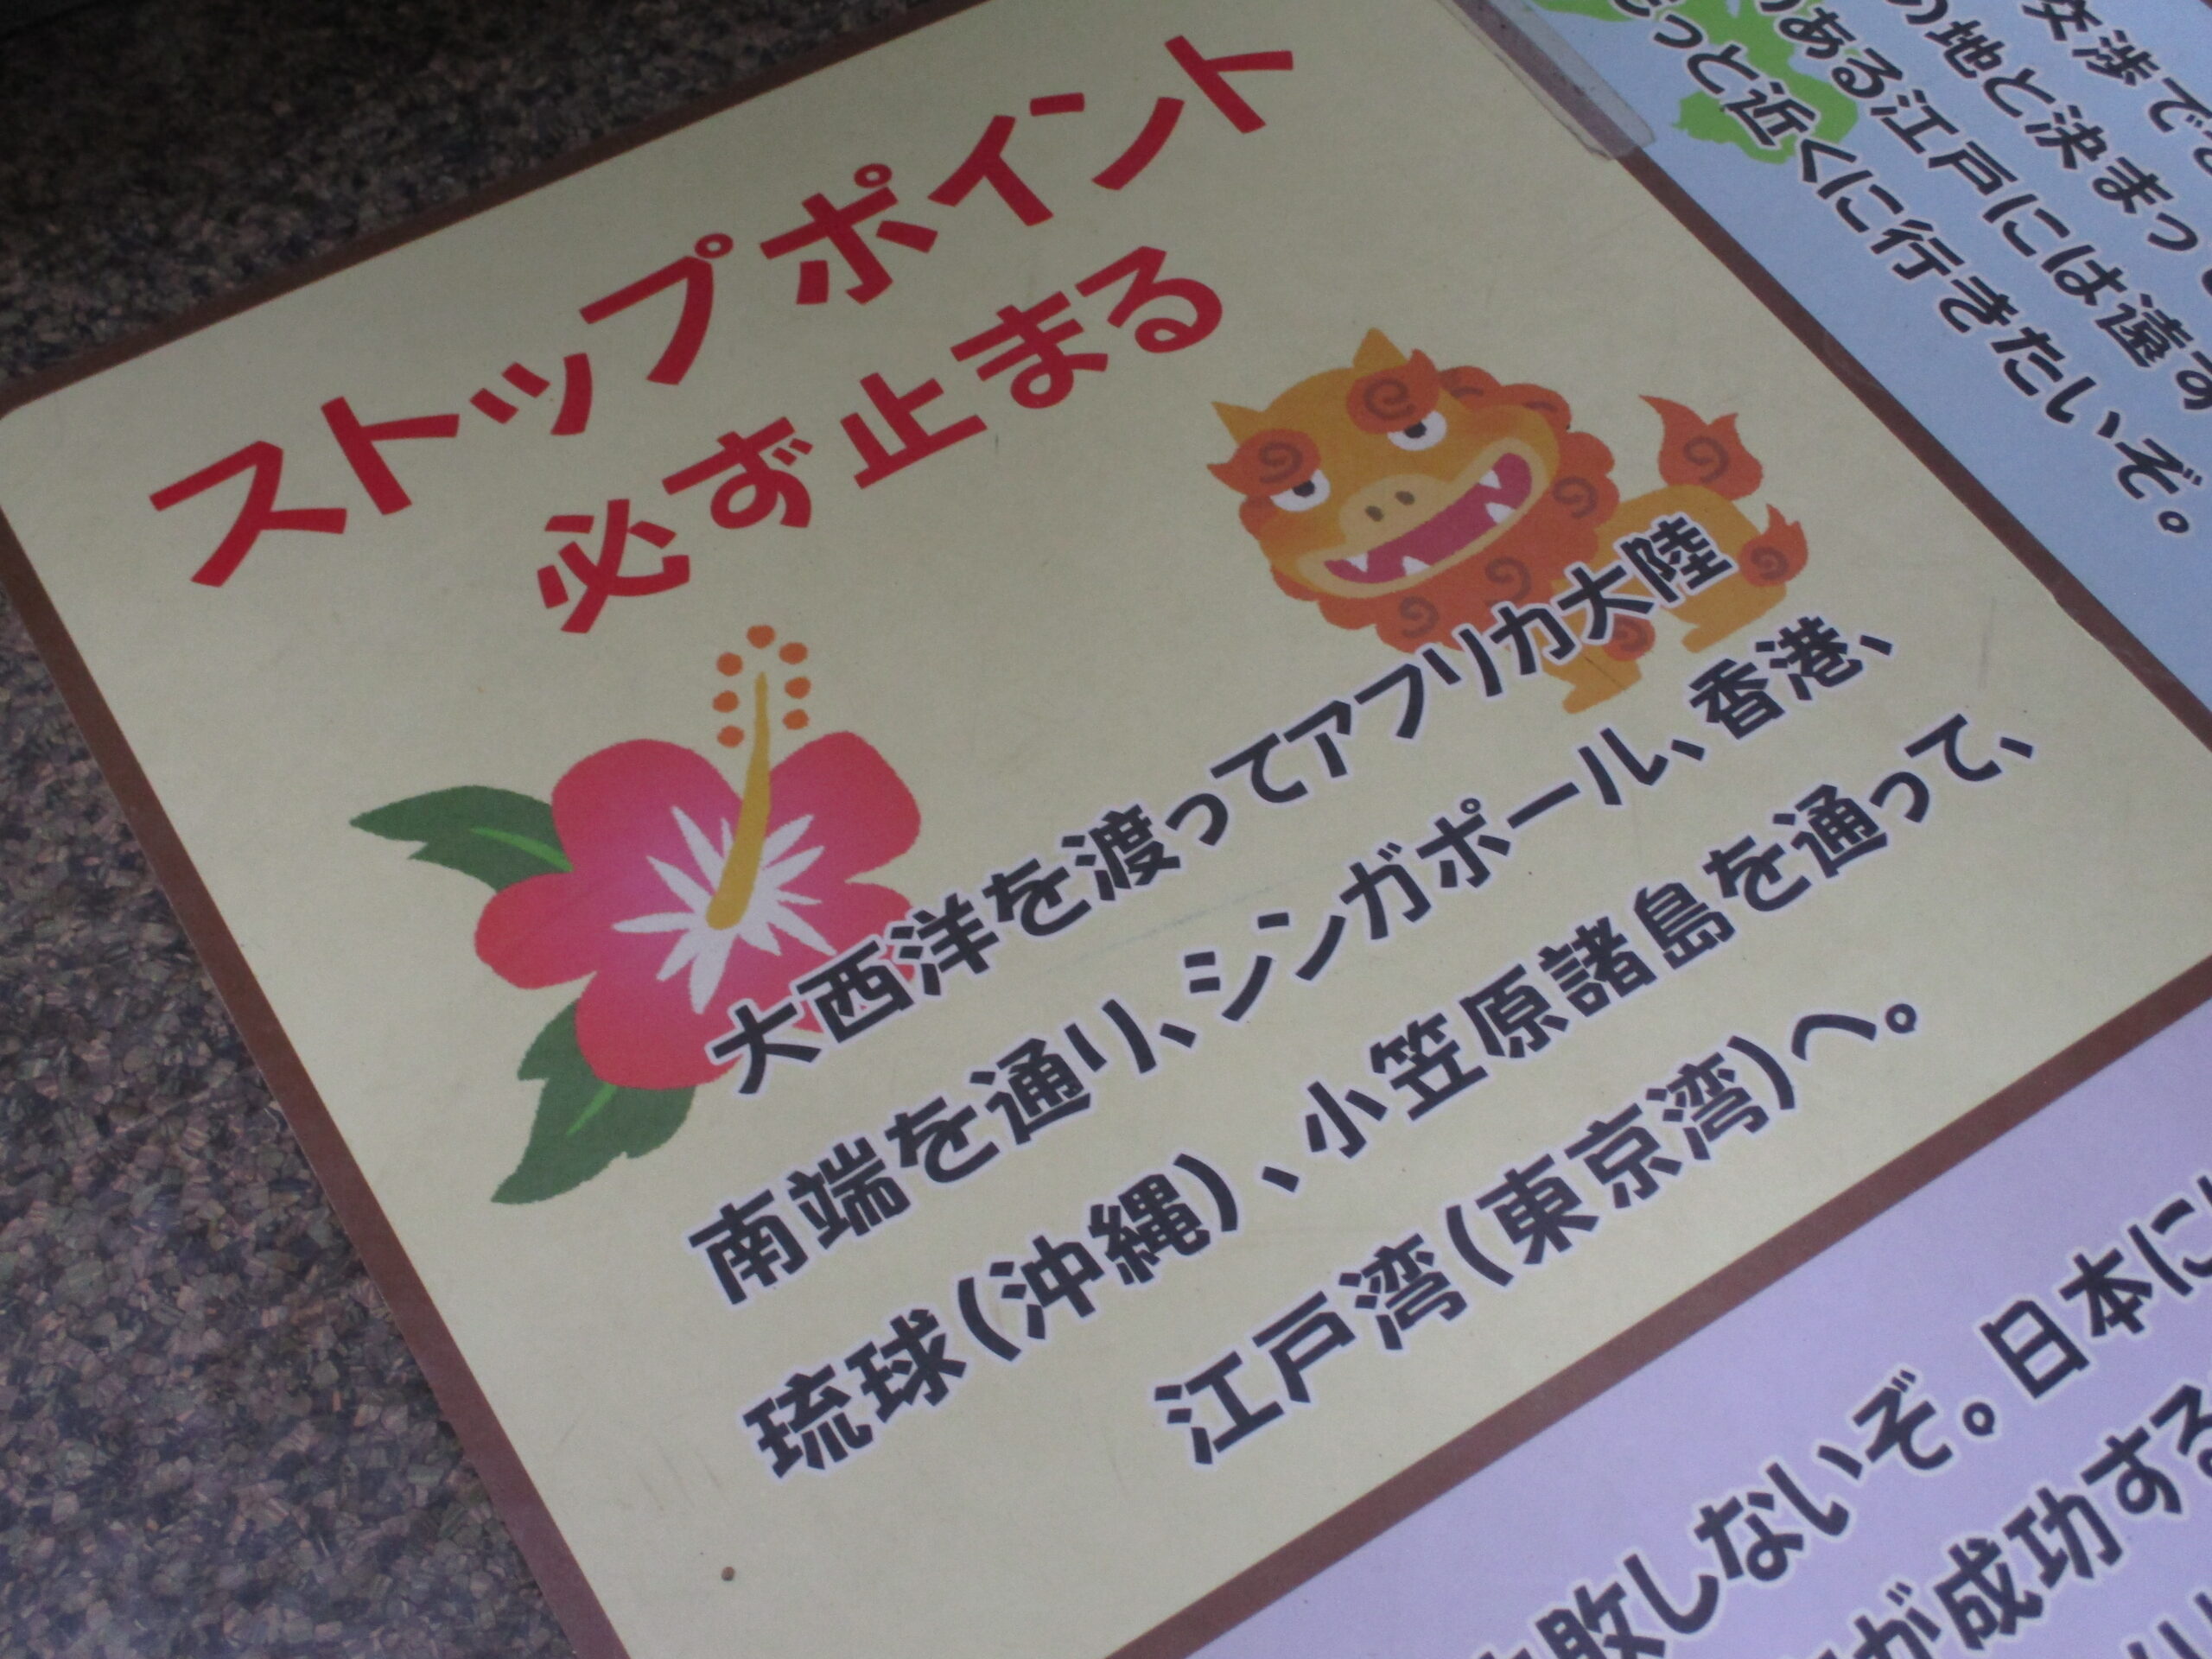 ストップポイント
必ず止まる
大西洋を渡ってアフリカ大陸
南端を通り、シンガポール、香港、
琉球(沖縄)、小笠原諸島を通って、
江戸湾(東京湾)へ。
交渉で
の地と決まって
ある江戸には遠す
もっと近くに行きたいぞ。
敗しないぞ。日本に
が成功する